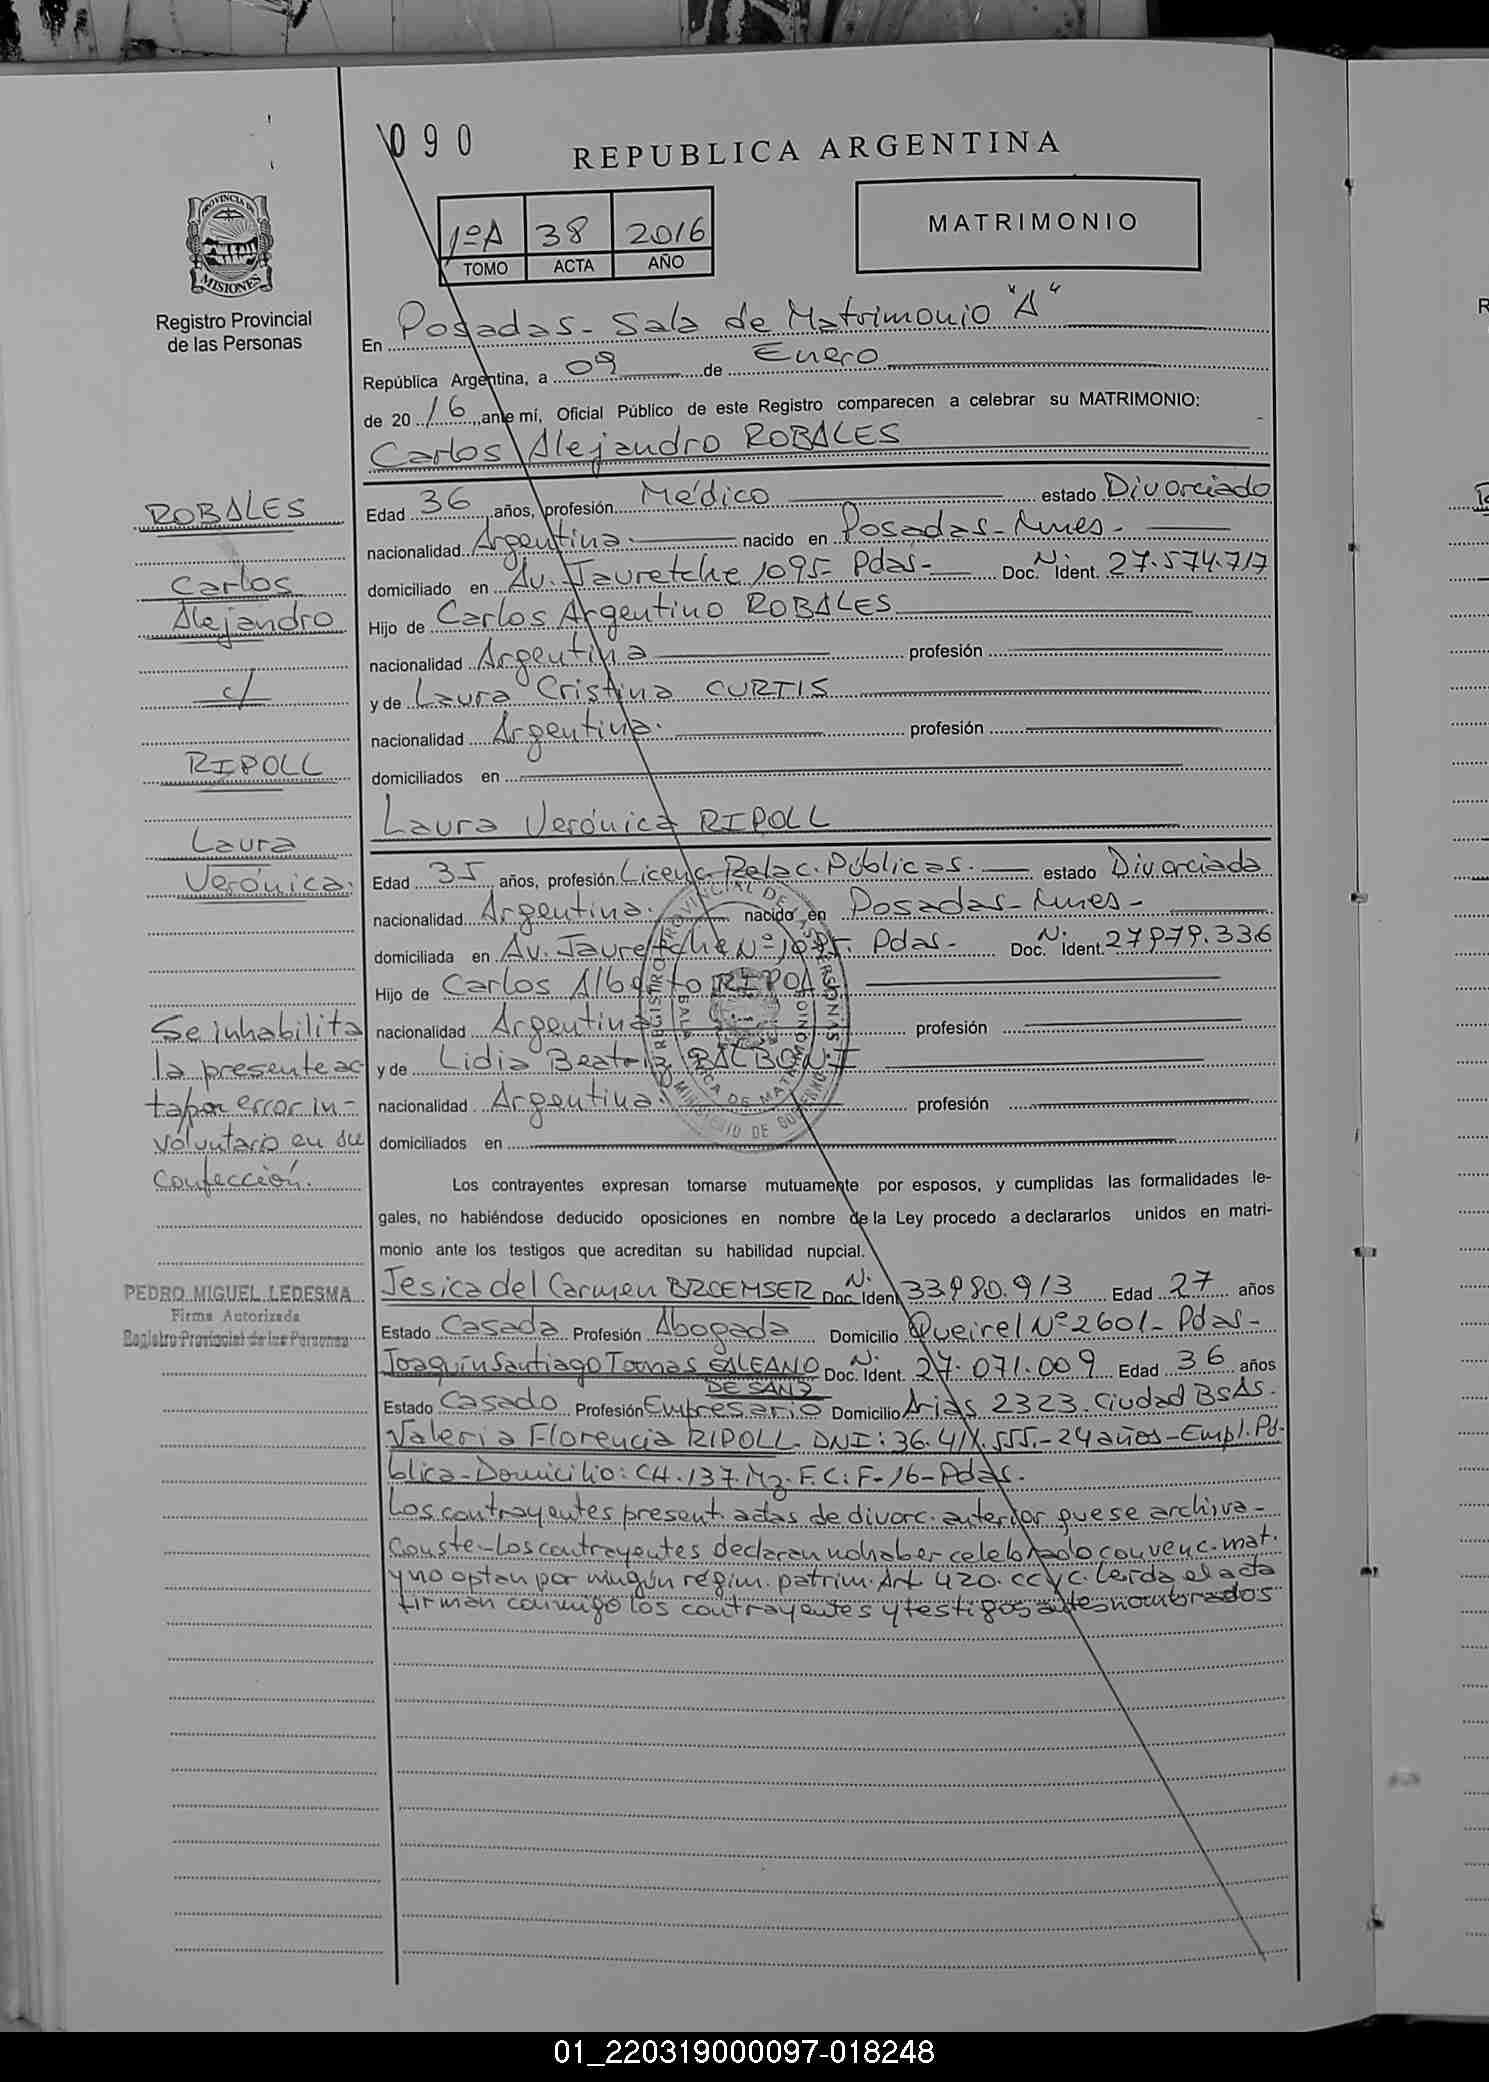 090
REPUBLICA ARGENTINA
PROVINCIA DE
MISIONES
Registro Provincial
de las Personas
1ºA 38 2016
TOMO ACTA AÑO
MATRIMONIO
En Posadas - Sala de Matrimonio "A"
República Argentina, a 09 de Enero
de 20 16, ante mí, Oficial Público de este Registro comparecen a celebrar su MATRIMONIO:
Carlos Alejandro ROBALES
Edad 36 años, profesión Médico estado Divorciado
nacionalidad Argentina. nacido en Posadas - Mnes -
domiciliado en Av. Jauretche 1095 - Pdas - Doc. N. Ident. 27.574.717
Hijo de Carlos Argentino ROBALES
nacionalidad Argentina profesión
y de Laura Cristina CURTIS
nacionalidad Argentina. profesión
domiciliados en
Laura Verónica RIPOLL
Edad 35 años, profesión Licenc. Relac. Públicas. estado Divorciada
nacionalidad Argentina. nacido en Posadas - Mnes -
domiciliada en Av. Jauretche Nº 1095. Pdas - Doc. N. Ident. 27.979.336
Hijo de Carlos Alberto RIPOLL
nacionalidad Argentina profesión
y de Lidia Beatriz BALBONI
nacionalidad Argentina. profesión
domiciliados en
Los contrayentes expresan tomarse mutuamente por esposos, y cumplidas las formalidades le-
gales, no habiéndose deducido oposiciones en nombre de la Ley procedo a declararlos unidos en matri-
monio ante los testigos que acreditan su habilidad nupcial.
Jesica del Carmen BROEMSER Doc. N. Ident. 33.980.913 Edad 27 años
Estado Casada Profesión Abogada Domicilio Queirel Nº 2601 - Pdas -
Joaquín Santiago Tomas GALEANO Doc. N. Ident. 27.071.009 Edad 36 años
DE SANZ
Estado Casado Profesión Empresario Domicilio Arias 2323. Ciudad BsAs.
Valeria Florencia RIPOLL - DNI: 36.411.555. - 24 años - Empl. Pú-
blica - Domicilio: CH. 137. Mz. F. C: F - 16 - Pdas.
Los contrayentes present. actas de divorc. anterior que se archiva -
Conste - Los contrayentes declaran no haber celebrado convenc. mat.
y no optan por ningún régim. patrim. Art. 420. CCyC. Leída el acta
firman conmigo los contrayentes y testigos antes nombrados
ROBALES
Carlos
Alejandro
c/
RIPOLL
Laura
Verónica.
Se inhabilita
la presente ac-
ta por error in-
voluntario en su
confección.
PEDRO MIGUEL LEDESMA
Firma Autorizada
Registro Provincial de las Personas
REGISTRO PROVINCIAL DE LAS PERSONAS
MINISTERIO DE GOBIERNO
01_220319000097-018248